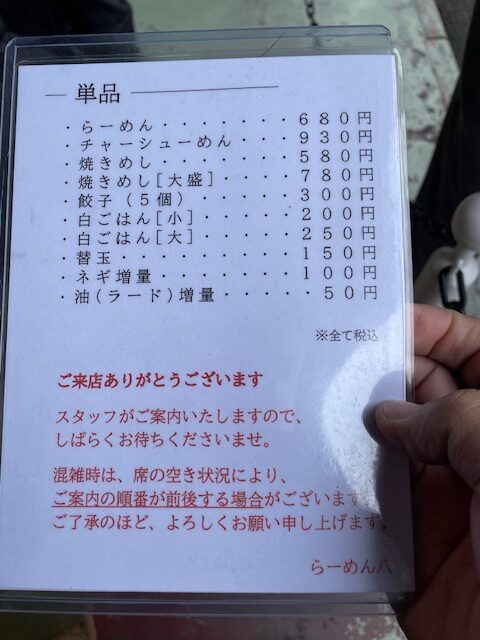 ― 単品 ――――――
・らーめん・・・・・・・680円
・チャーシューめん・・・930円
・焼きめし・・・・・・・580円
・焼きめし[大盛]・・・・780円
・餃子（5個）・・・・・300円
・白ごはん[小]・・・・・200円
・白ごはん[大]・・・・・250円
・替玉・・・・・・・・・150円
・ネギ増量・・・・・・・100円
・油(ラード)増量・・・・・50円
※全て税込
ご来店ありがとうございます
スタッフがご案内いたしますので、
しばらくお待ちくださいませ。
混雑時は、席の空き状況により、
ご案内の順番が前後する場合がございます。
ご了承のほど、よろしくお願い申し上げます。
らーめん八